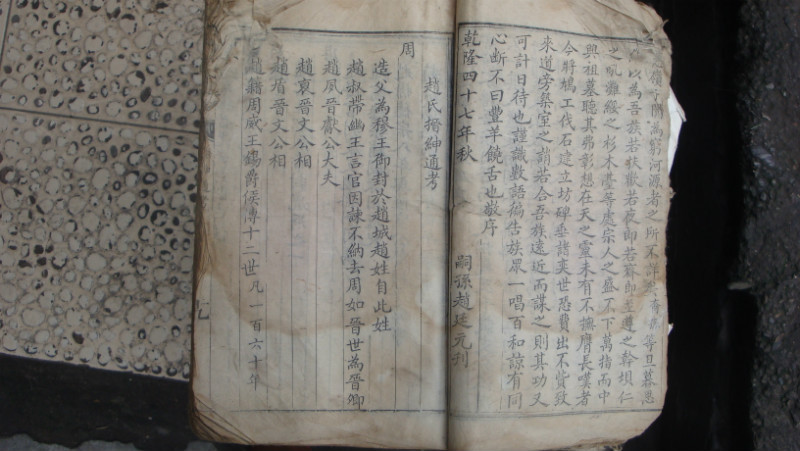 以為吾族若
之
與祖墓聽其弗彰想在天之靈未有不撫膺長嘆者
今將鳩工伐石建立坊碑垂諸奕世恐費出不貲致
來道旁築室之誚若合吾族遠近而謀之則其功又
可計日待也謹識數語徧告族眾一唱百和諒有同
心斷不曰豐羊饒舌也敬序
乾隆四十七年秋 嗣孫趙廷元刊
趙氏搢紳通考
周
一造父為穆王御封於趙城趙姓自此姓
趙叔帶幽王言官因諫不納去周如晉世為晉卿
趙夙晉獻公大夫
趙衰晉文公相
趙盾晉文公相
趙籍周威王錫爵侯傳十二世凡一百六十年